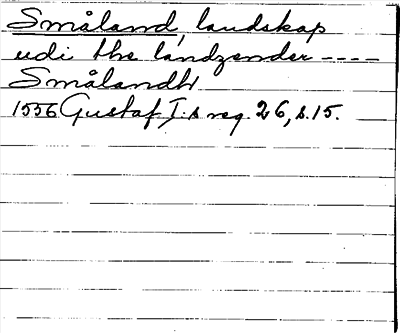 Småland, landskap
udi the landzender ----
Smålandh
1556 Gustaf I:s reg. 26, s. 15.